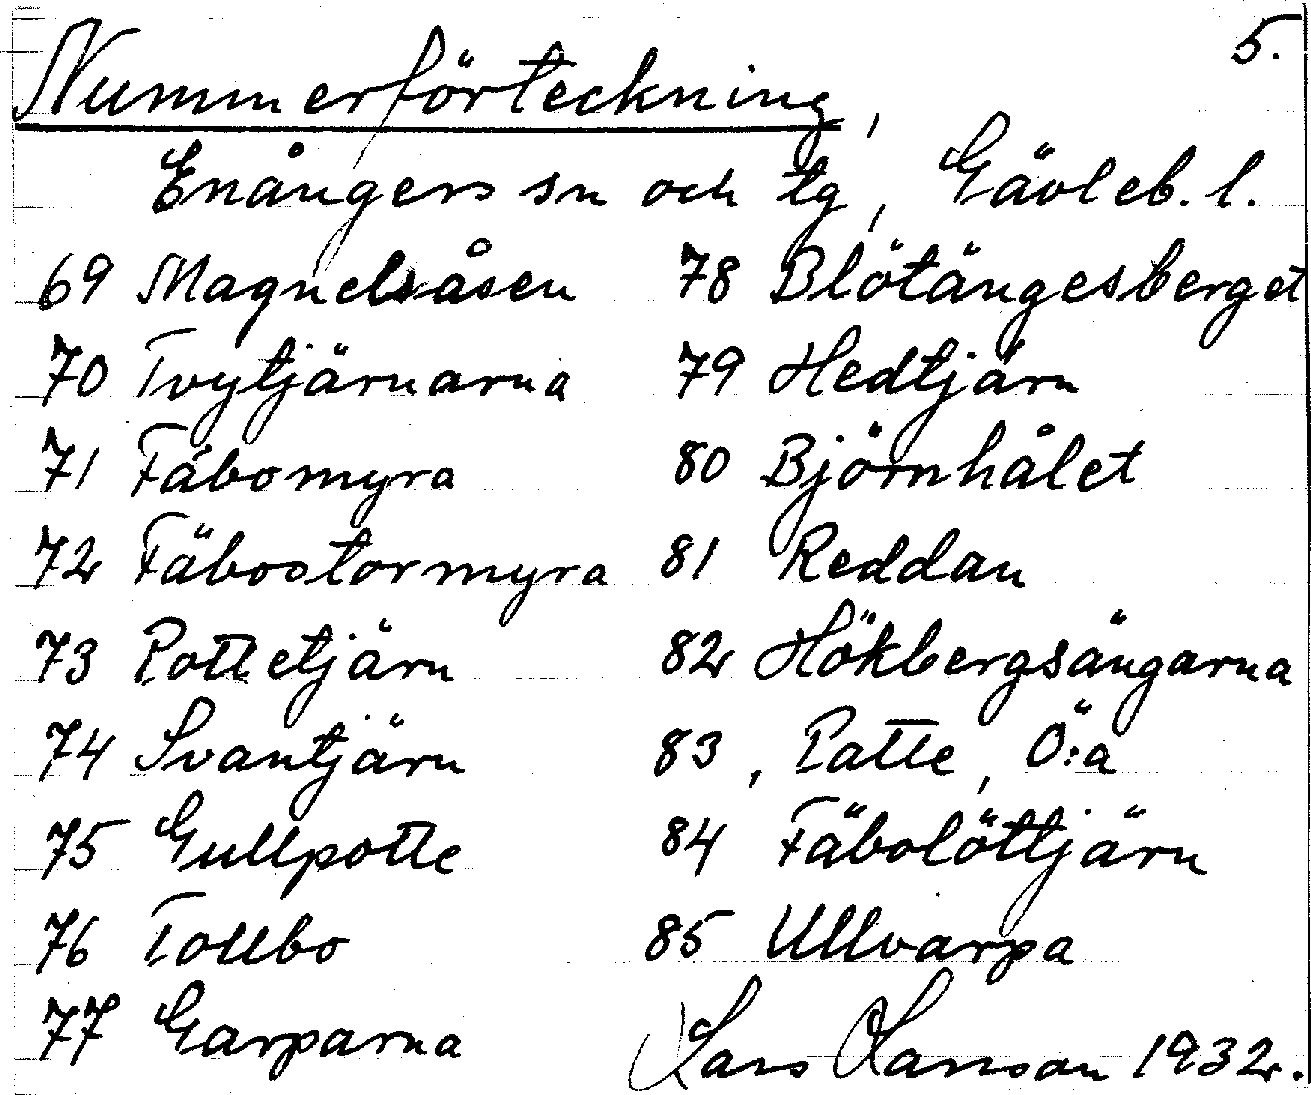 5.
Nummerförteckning,
Enångers sn och tg, Gävleb. l.
69 Magnelsåsen
70 Tvytjärnarna
71 Fäbomyra
72 Fäbostormyra
73 Pottetjärn
74 Svantjärn
75 Gullpotte
76 Tottbo
77 Garparna
78 Blötängesberget
79 Hedtjärn
80 Björnhålet
81 Reddan
82 Hökbergsängarna
83 , Patte, Ö:a
84 Fäbolöttjärn
85 Ullvarpa
Lars Larsson 1932.